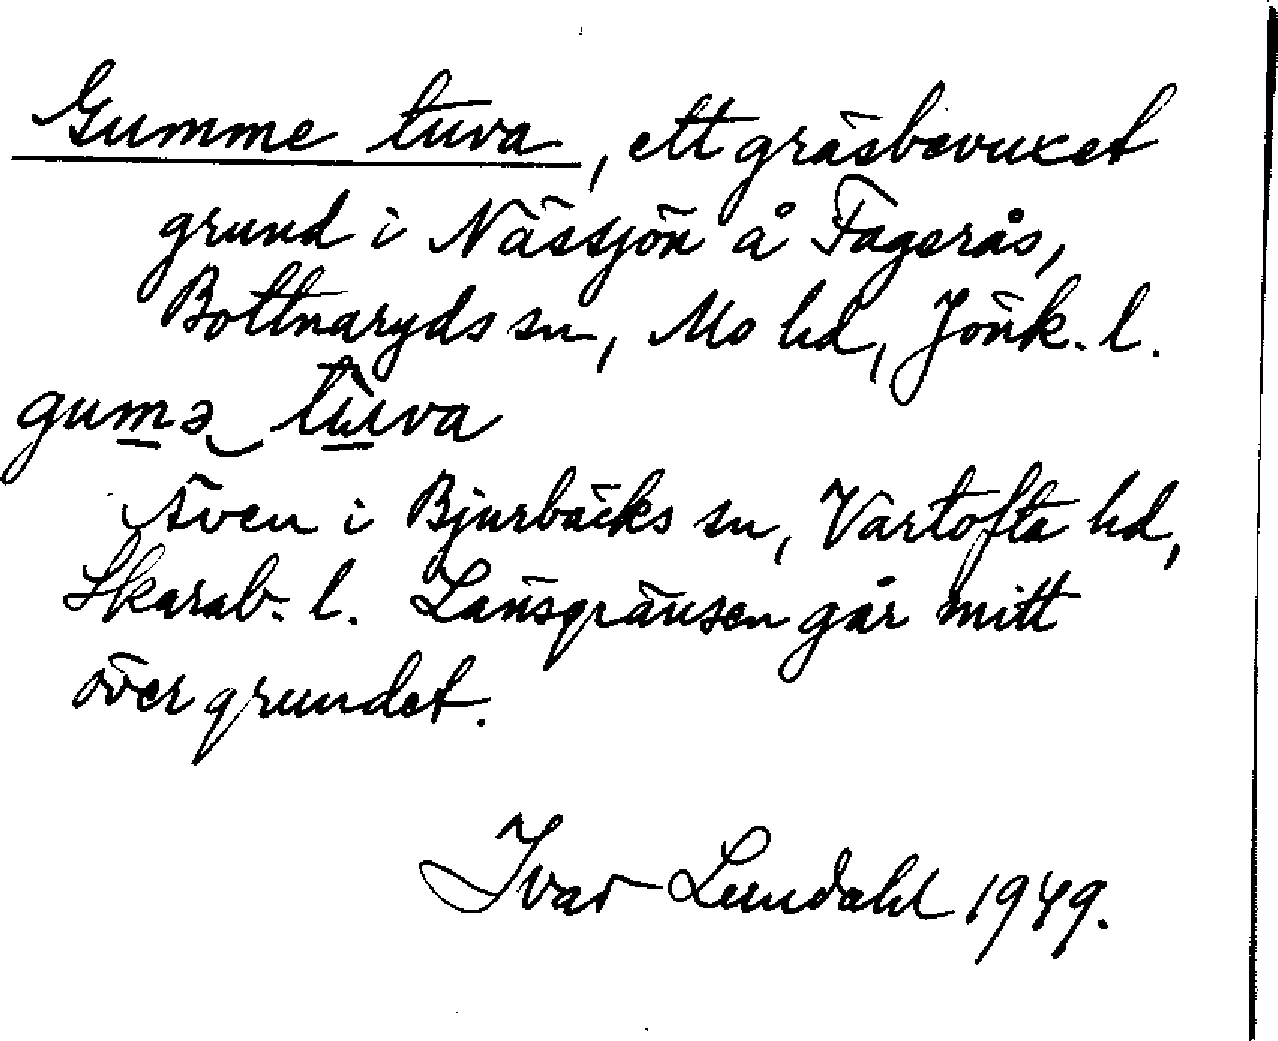 Gumme tuva, ett gräsbevuxet
grund i Nässjön å Fagerås,
Bottnaryds sn, Mo hd, Jönk. l.
gumə tùva
Även i Bjurbäcks sn, Vartofta hd,
Skarab. l. Länsgränsen går mitt
över grundet.
Ivar Lundahl 1949.